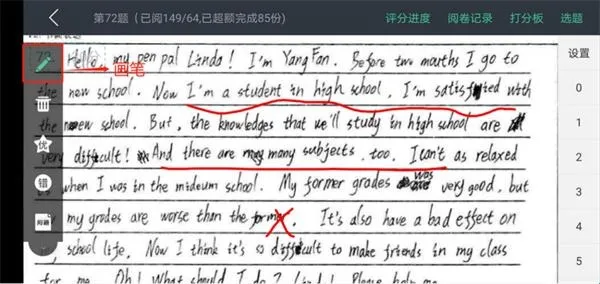 第72题（已阅149/64,已超额完成85份）
评分进度 阅卷记录 打分板 选题
Hello, my pen pal Linda! I'm Yang Fan. Before two mouths I go to
画笔
the new school. Now I'm a student in high school, I'm satisfied with
the new school. But, the knowledges that we'll study in high school are
very difficult! And there are many subjects, too. I can't as relaxed
when I was in the mideum school. My former grades was very good, but
my grades are worse than the former. It's also have a bad effect on
school life. Now I think it's so difficult to make friends in my class
for me. Oh! What should I do? Linda! Please help me
优
错
问题
设置
0
1
2
3
4
5